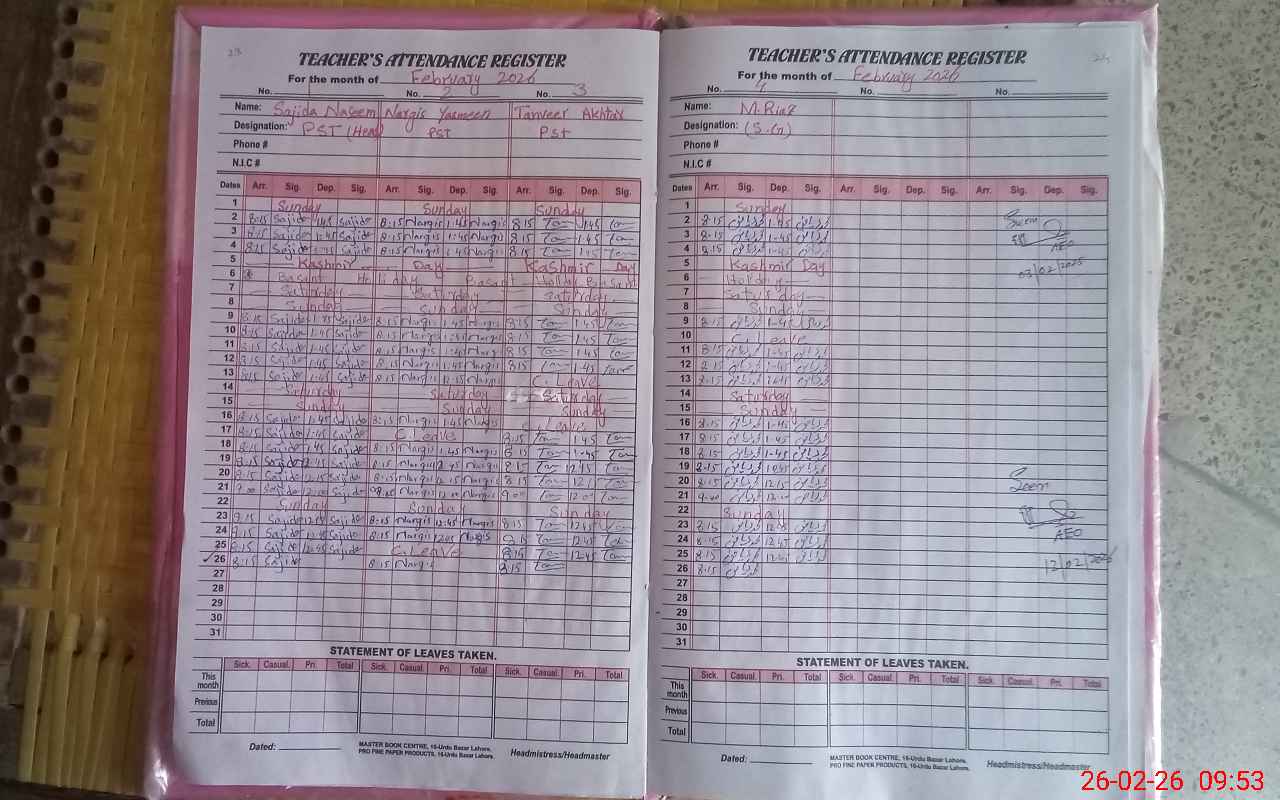 23
TEACHER'S ATTENDANCE REGISTER
For the month of February 2026
No. 1 No. 2 No. 3
Name: Sajida Naseem Nargis Yasmeen Tanveer Akhtar
Designation: PST (Head PST PST
Phone #
N.I.C #
Dates Arr. Sig. Dep. Sig. Arr. Sig. Dep. Sig. Arr. Sig. Dep. Sig.
1 Sunday Sunday Sunday
2 8:15 Sajida 1:45 Sajida 8:15 Nargis 1:45 Nargis 8:15 1:45
3 8:15 Sajida 1:45 Sajida 8:15 Nargis 1:45 Nargis 8:15 1:45
4 8:15 Sajida 1:45 Sajida 8:15 Nargis 1:45 Nargis 8:15 1:45
5 Kashmir Day Kashmir Day
6 Basant Holiday Basant Holiday Basant
7 Saturday Saturday Saturday
8 Sunday Sunday Sunday
9 8:15 Sajida 1:45 Sajida 8:15 Nargis 1:45 Nargis 8:15 1:45
10 8:15 Sajida 1:45 Sajida 8:15 Nargis 1:45 Nargis 8:15 1:45
11 8:15 Sajida 1:45 Sajida 8:15 Nargis 1:45 Nargis 8:15 1:45
12 8:15 Sajida 1:45 Sajida 8:15 Nargis 1:45 Nargis 8:15 1:45
13 8:15 Sajida Sajida 8:15 Nargis Nargis C. Leave
14 Saturday Saturday Saturday
15 Sunday Sunday Sunday
16 8:15 Sajida 1:45 Sajida 8:15 Nargis 1:45 Nargis C. Leave
17 8:15 Sajida 1:45 Sajida C. Leave 8:15 1:45
18 8:15 Sajida 1:45 Sajida 8:15 Nargis 1:45 Nargis 8:15 1:45
19 8:15 Sajida 12:45 Sajida 8:15 Nargis 12:45 Nargis 8:15 12:45
20 8:15 Sajida 12:15 Sajida 8:15 Nargis 12:15 Nargis 8:15 12:15
21 9:00 Sajida 12:00 Sajida Nargis 12:00 Nargis 9:00 12:00
22 Sunday Sunday Sunday
23 8:15 Sajida 12:45 Sajida 8:15 Nargis 12:45 Nargis 8:15 12:45
24 8:15 Sajida 12:45 Sajida 8:15 Nargis Nargis 8:15 12:45
25 8:15 Sajida 12:45 Sajida C. Leave 8:15 12:45
26 8:15 Sajida 8:15 Nargis 8:15
27
28
29
30
31
STATEMENT OF LEAVES TAKEN.
Sick. Casual. Pri. Total Sick. Casual. Pri. Total Sick. Casual. Pri. Total
This month
Previous
Total
Dated:
MASTER BOOK CENTRE, 16-Urdu Bazar Lahore.
PRO FINE PAPER PRODUCTS, 16-Urdu Bazar Lahore.
Headmistress/Headmaster
24
TEACHER'S ATTENDANCE REGISTER
For the month of February 2026
No. 4 No. No.
Name: M. Riaz
Designation: (S.G)
Phone #
N.I.C #
Dates Arr. Sig. Dep. Sig. Arr. Sig. Dep. Sig. Arr. Sig. Dep. Sig.
1 Sunday
2 8:15 1-45 Seen
3 8:15 1-45
4 8:15 1-45 AEO
5 Kashmir Day 03/02/2025
6 Holiday
7 Saturday
8 Sunday
9 8:15 1-45
10 C. Leave
11 8:15 1-45
12 8:15 1-45
13 8:15
14 Saturday
15 Sunday
16 8:15 1-45
17 8:15 1-45
18 8:15 1-45
19 8:15 12:45
20 8:15 12:15 Seen
21 9:00 12:00
22 Sunday
23 8:15 12:45
24 8:15 12:45 AEO
25 8:15 12:45
26 8:15
27
28
29
30
31
STATEMENT OF LEAVES TAKEN.
Sick. Casual. Pri. Total Sick. Casual. Pri. Total Sick. Casual. Pri. Total
This month
Previous
Total
Dated:
MASTER BOOK CENTRE, 16-Urdu Bazar Lahore.
PRO FINE PAPER PRODUCTS, 16-Urdu Bazar Lahore.
Headmistress/Headmaster
26-02-26 09:53